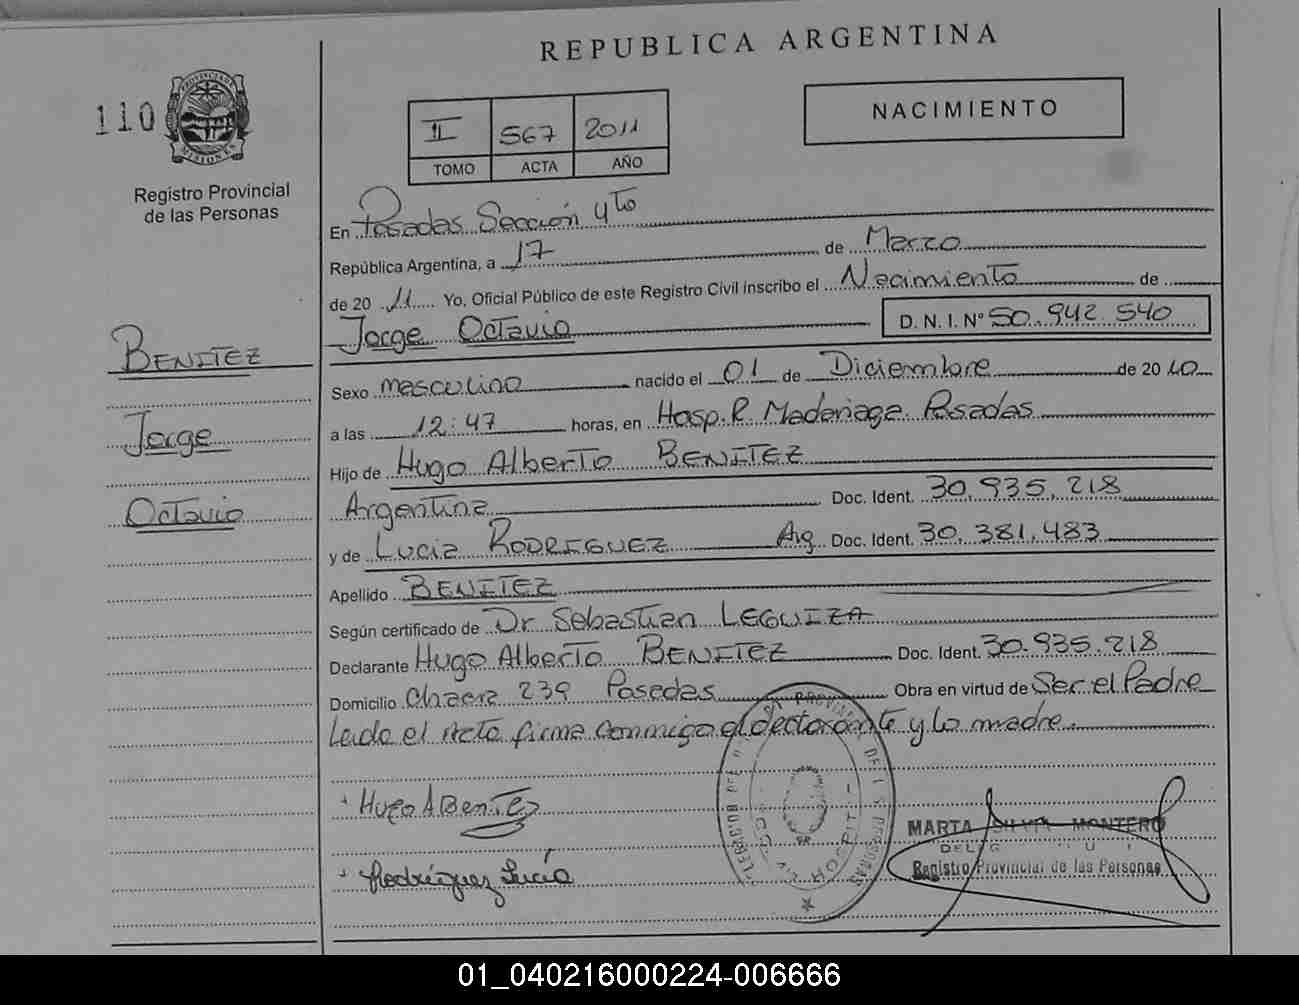 REPUBLICA ARGENTINA
110
PROVINCIA DE
MISIONES
Registro Provincial
de las Personas
II 567 2011
TOMO ACTA AÑO
NACIMIENTO
BENITEZ
Jorge
Octavio
En Posadas Sección 4to
República Argentina, a 17 de Marzo
de 20 11 Yo, Oficial Público de este Registro Civil inscribo el Nacimiento de
Jorge Octavio D. N. I. Nº 50.942.540
Sexo masculino nacido el 01 de Diciembre de 20 10
a las 12:47 horas, en Hosp. R. Madariaga Posadas
Hijo de Hugo Alberto BENITEZ
Argentina Doc. Ident. 30.935.218
y de Lucia RODRIGUEZ Arg. Doc. Ident. 30.381.483
Apellido BENITEZ
Según certificado de Dr. Sebastian LEGUIZA
Declarante Hugo Alberto BENITEZ Doc. Ident. 30.935.218
Domicilio 239 Posadas Obra en virtud de Ser el Padre
Leido el Acta firma conmigo el declarante y la madre.
Hugo A Benitez
Rodríguez Lucía
MARTA SILVIA MONTERO
Registro Provincial de las Personas
01_040216000224-006666